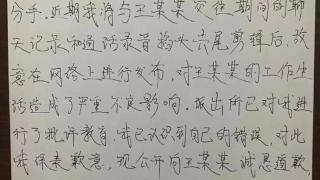 分手。近期我将与王某某交往期间的聊
天记录和通话录音掐头去尾剪辑后，故
意在网络上进行发布，对王某某的工作生
活造成了严重不良影响。派出所已对我进
行了批评教育，我已认识到自己的错误，对此
我深表歉意，现公开向王某某诚恳道歉，